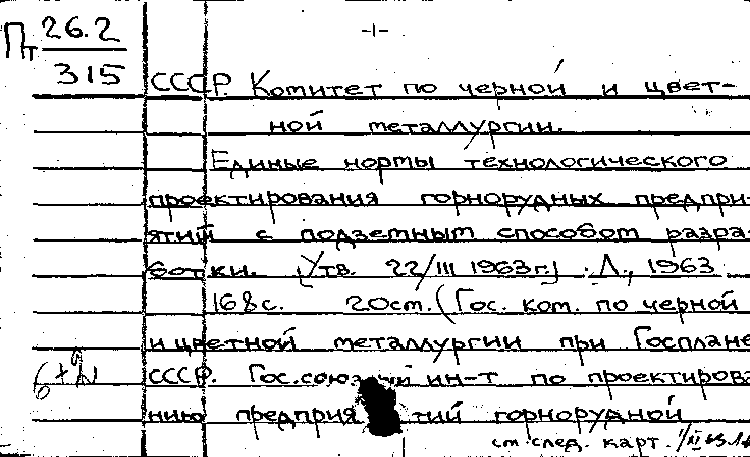 Пт 26.2
315
-1-
СССР. Комитет по черной и цвет-
ной металлургии.
Единые нормы технологического
проектирования горнорудных предпри-
ятий с подземным способом разра-
ботки. [Утв. 22/III 1963г.] Л., 1963
168с. 20см. (Гос. ком. по черной
и цветной металлургии при Госплане
СССР. Гос.союзный ин-т по проектирова-
нию предприятий горнорудной
см след. карт.